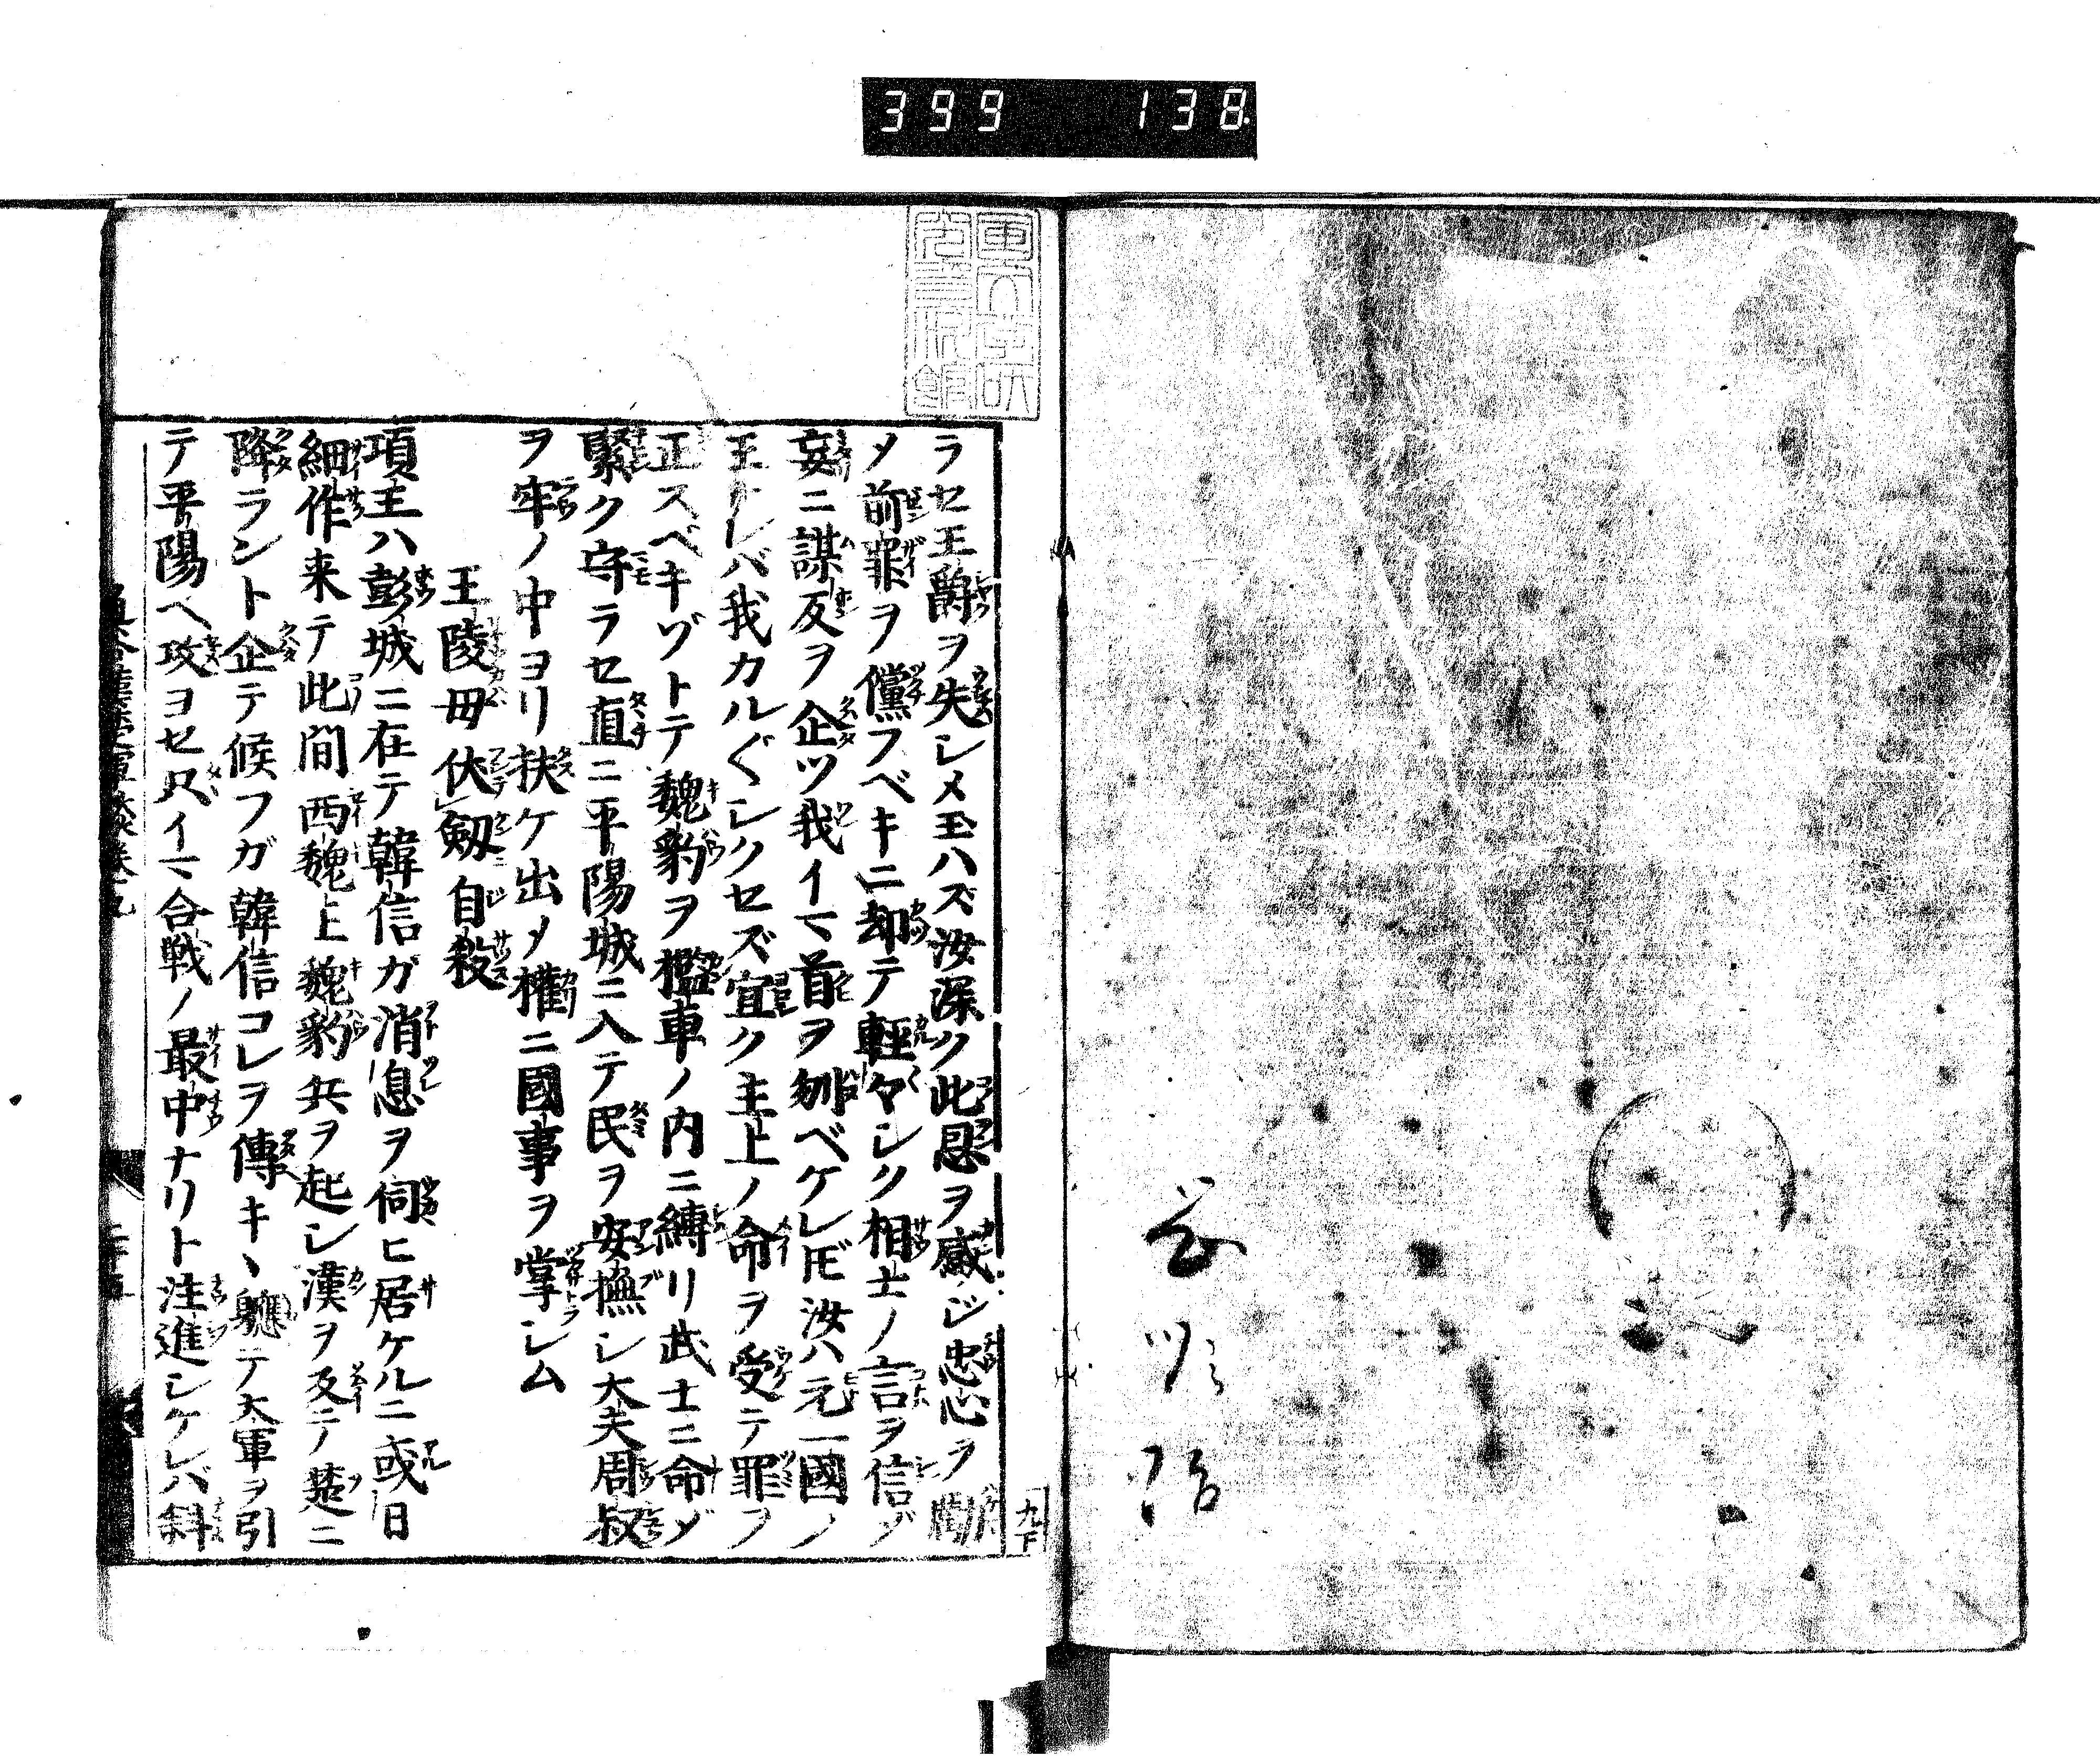 399 138
ラセ王爵ヲ失レメ玉ハズ汝深ク此恩ヲ感ジ忠心ヲ
メ前罪ヲ儻フベキニ却テ輕々シク相士ノ言ヲ信ジ
妄ニ謀反ヲ企ツ我イマ首ヲ刎ベケレ𪜈汝ハ元一國ノ
王タレバ我カル〱シクセズ宜ク主上ノ命ヲ受テ罪ヲ
正スベキゾトテ魏豹ヲ檻車ノ内ニ縛リ武士ニ命ジ
緊ク守ラセ直ニ平陽城ニ入テ民ヲ安撫シ大夫周叔
ヲ牢ノ中ヨリ扶ケ出メ權ニ國事ヲ掌シム
王陵母伏劔自殺
項王ハ彭城ニ在テ韓信ガ消息ヲ伺ヒ居ケルニ或日
細作来テ此間西魏王魏豹兵ヲ起シ漢ヲ反テ楚ニ
降ラント企テ候フガ韓信コレヲ傳キヽ軈テ大軍ヲ引
テ平陽ヘ攻ヨセ只イマ合戦ノ最中ナリト注進シケレバ
九下